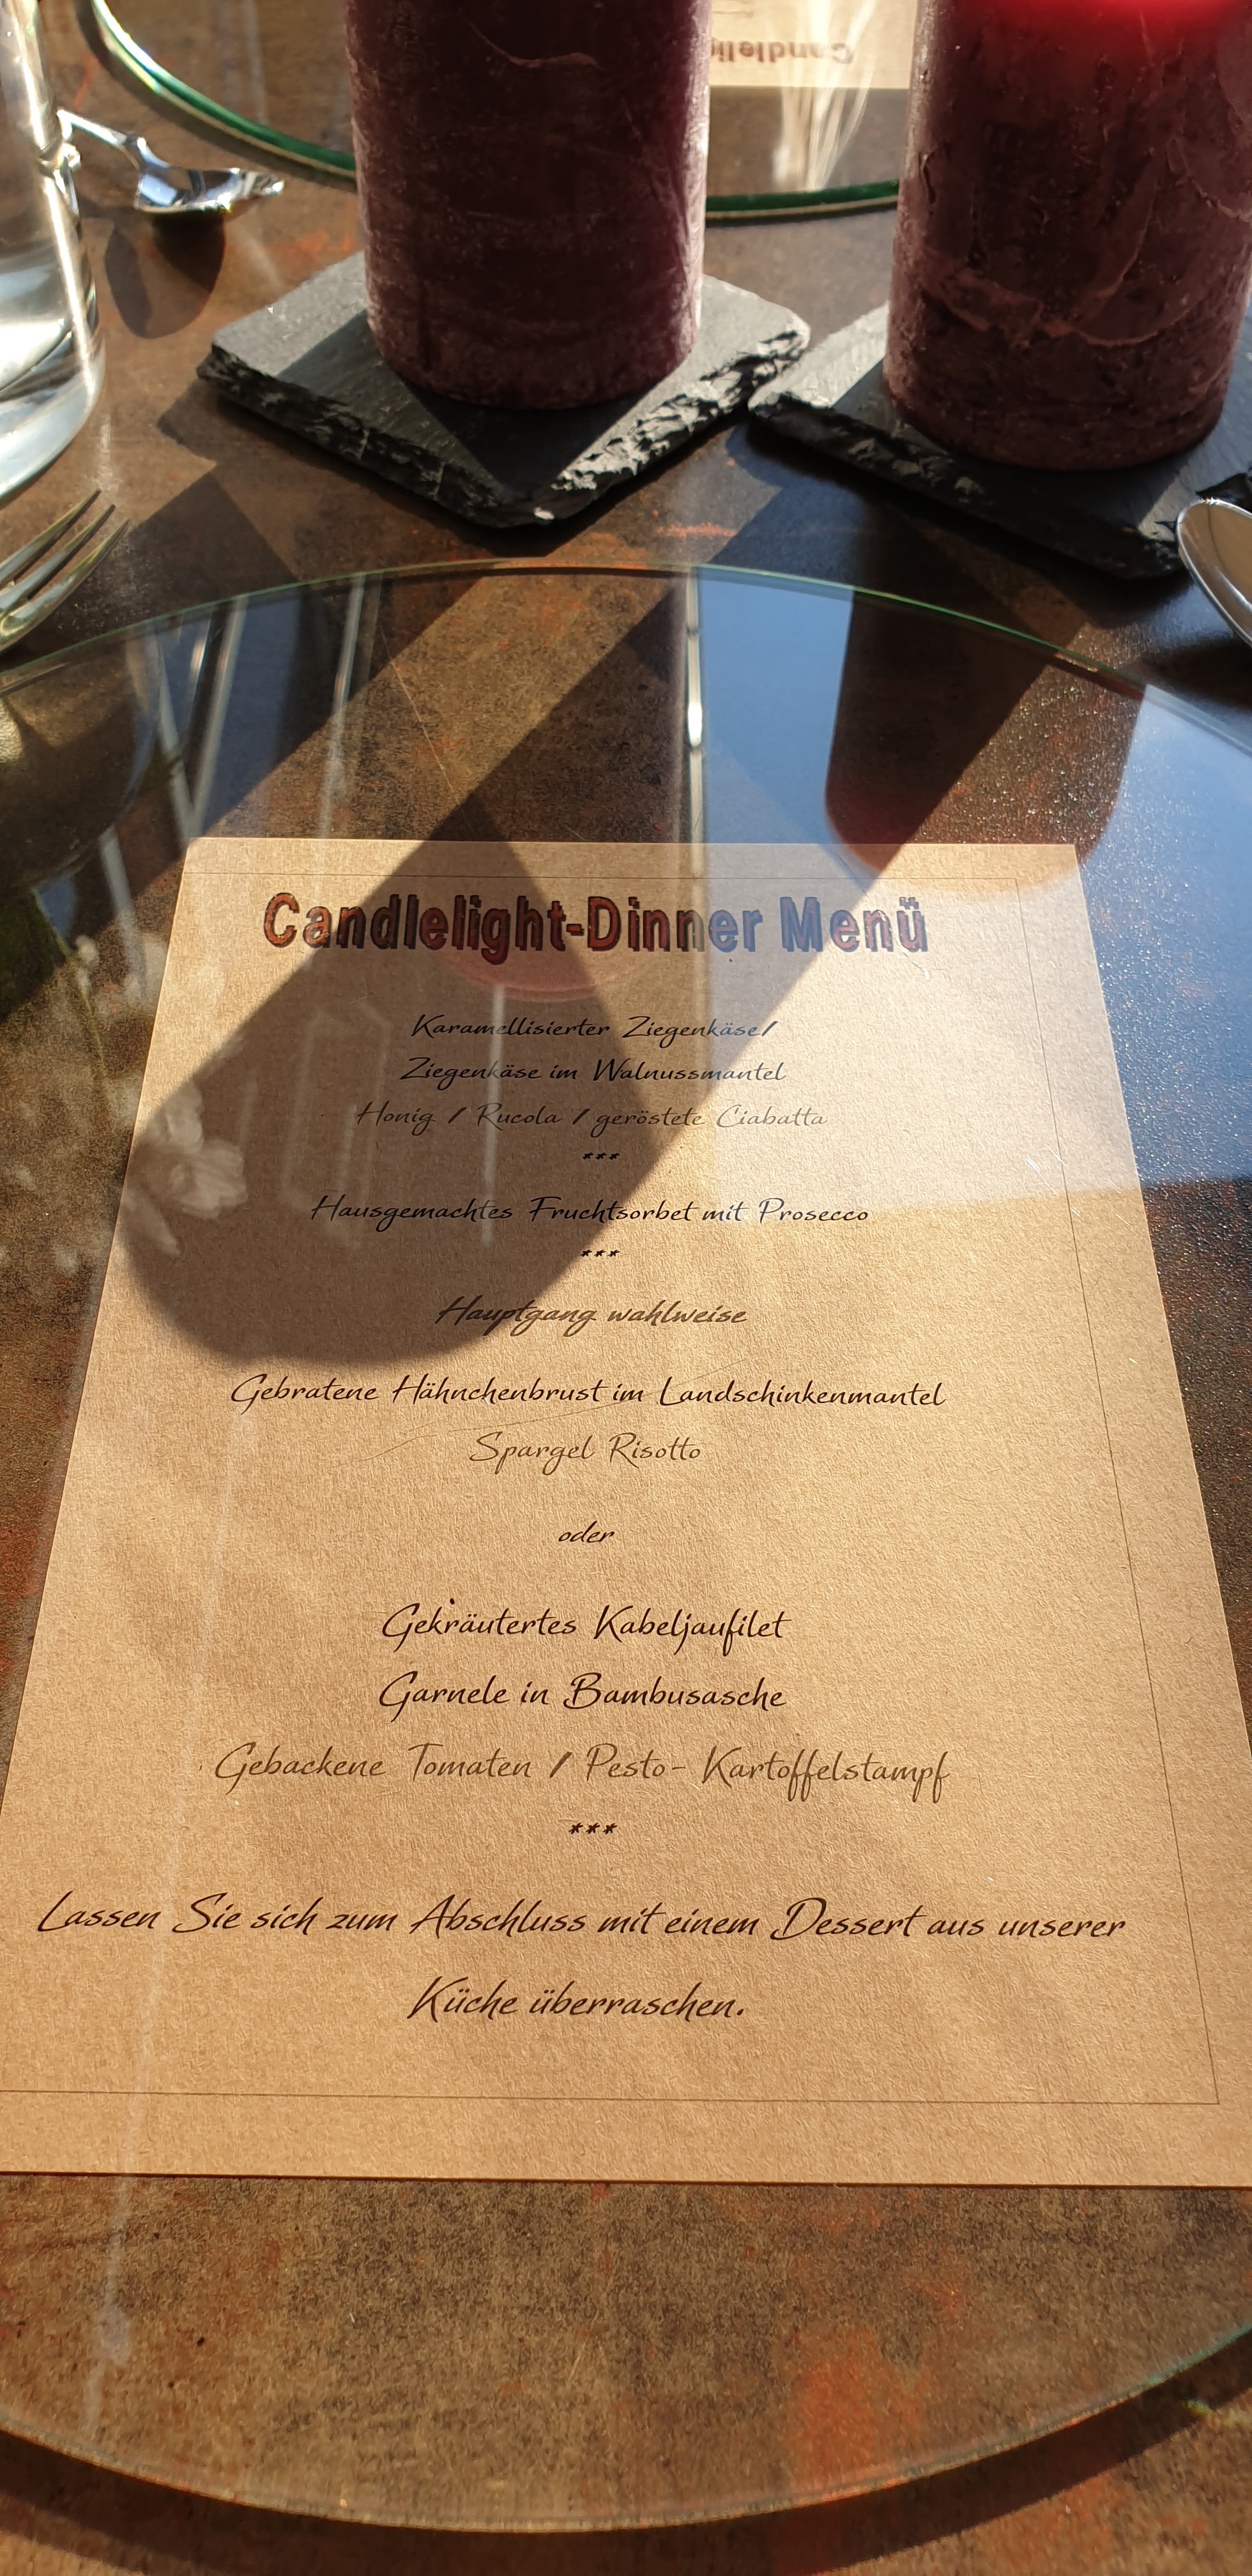 Candlelight-Dinner Menü
Karamellisierter Ziegenkäse/
Ziegenkäse im Walnussmantel
Honig / Rucola / geröstete Ciabatta
***
Hausgemachtes Fruchtsorbet mit Prosecco
***
Hauptgang wahlweise
Gebratene Hähnchenbrust im Landschinkenmantel
Spargel Risotto
oder
Gekräutertes Kabeljaufilet
Garnele in Bambusasche
Gebackene Tomaten / Pesto- Kartoffelstampf
***
Lassen Sie sich zum Abschluss mit einem Dessert aus unserer
Küche überraschen.